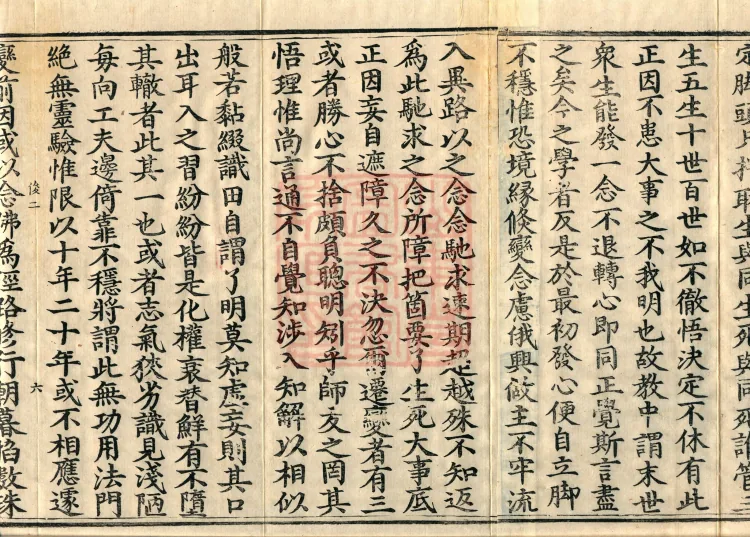 定脚頭只拌取生與同生死與同死說管三
生五生十世百世如不徹悟決定不休有此
正因不患大事之不我明也故教中謂末世
衆生能發一念不退轉心即同正覺斯言盡
之矣今之學者反是於最初發心便自立脚
不穩惟恐境緣倐變念慮俄興做主不牢流
入異路以之念念馳求速期超越殊不知返
爲此馳求之念所障把箇要了生死大事底
正因妄自遮障久之不決忽爾遷變者有三
或者勝心不捨頗負聰明矧乎師友之罔其
悟理惟尚言通不自覺知涉入知解以相似
般若黏綴識田自謂了明莫知虛妄則其口
出耳入之習紛紛皆是化權衰替鮮有不墮
其轍者此其一也或者志氣狹劣識見淺陋
每向工夫邊倚靠不穩將謂此無功用法門
絕無靈驗惟限以十年二十年或不相應遂
後二
六
變前因或以念佛爲徑路修行朝暮掐數珠